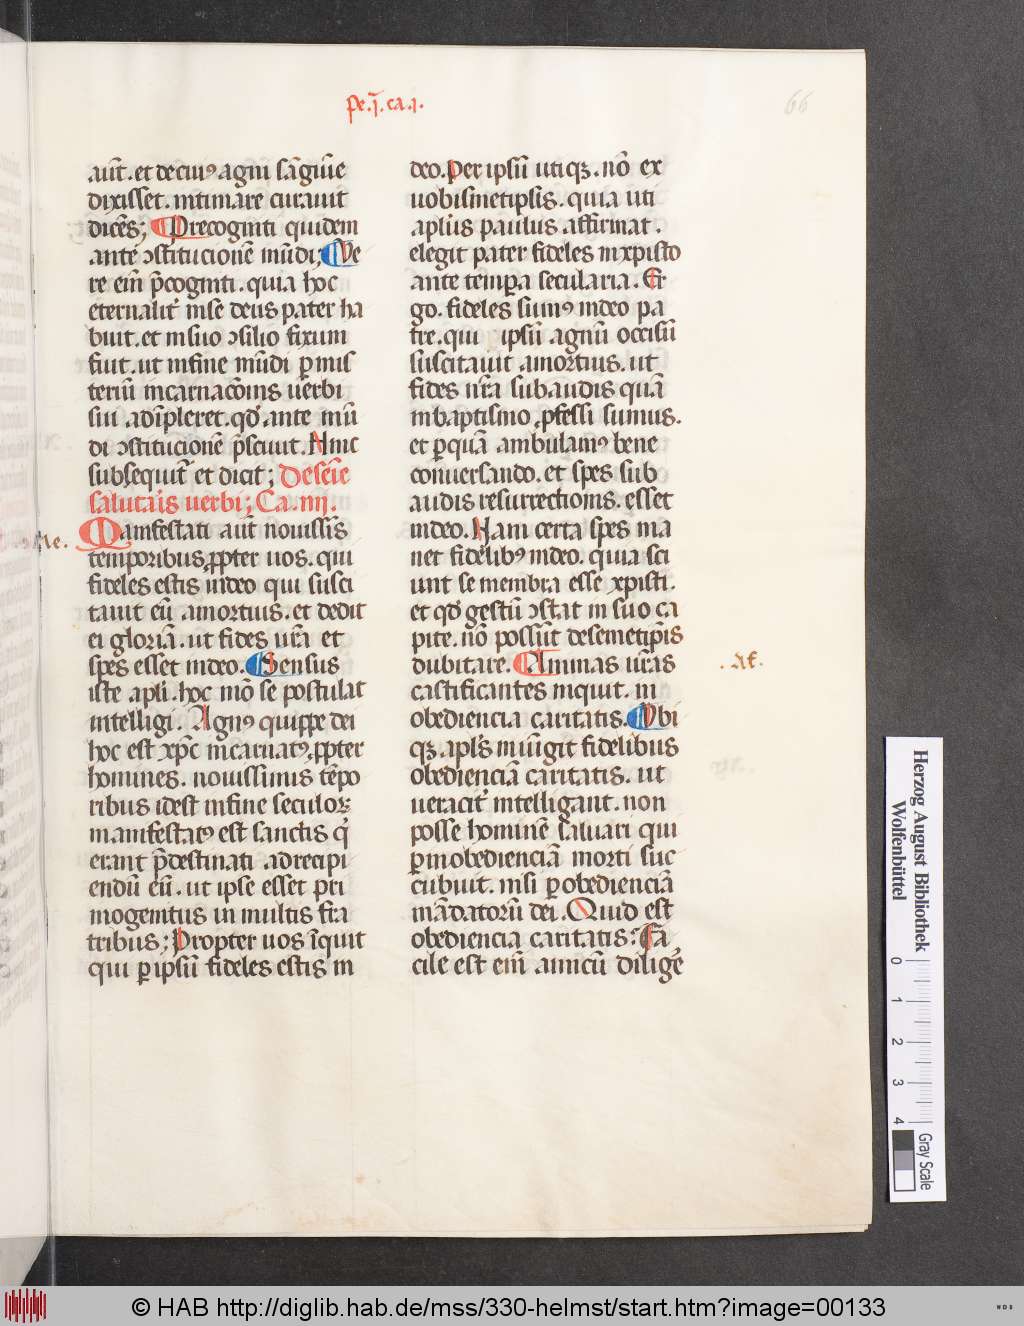 pe.ī.ca.i.
66
.aūt.et de cuiꝰ agni sāguīe
dixisset.intimare curauit
dicēs; Precogniti quidem
ante ↄstitucionē mūdi; Ve
re eīm p̄cogniti.quia hoc
eternalit᷑ in se deus pater ha
buit.et in suo ↄsilio fixum
fuit.ut in fine mūdi ꝑ mis
teriū incarnac̄ōnis uerbi
sui adīpleret.qd̄ ante mū
di ↄstitucionē p̄sciuit.Hinc
subsequit᷑ et dicit; De seīe
salutaīs uerbi; Ca.iiij.
Manifestati aūt nouissīs
temporibus ꝓpter uos.qui
fideles estis in deo qui susci
tauit eū a mortuis.et dedit
ei gloriā.ut fides ur̄a et
spes esset in deo. Sensus
iste apli.hoc mō se postulat
intelligi. Agnꝰ quippe dei
hoc est xp̄c incarnatꝰ ꝓpter
homines.nouissimis tēpo
ribus idest in fine seculoꝝ
manifestatꝰ est sanctis q̇
erant p̄destinati ad recipi
endū eū.ut ipse esset pri
mogenitus in multis fra
tribus; Propter uos īquit
qui ꝑ ipsū fideles estis in
deo.Per ipsū utiqꝫ.nō ex
uobismetipsis.quia uti
aplus paulus affirmat.
elegit pater fideles in xpisto
ante tempora secularia. Er
go.fideles sumꝰ in deo pa
tre.qui ipsū agnū occisū
suscitauit a mortuis.ut
fides nr̄a subaudis quā
in baptismo ꝓfessi sumus.
et ꝑ quā ambulamꝰ bene
conuersando.et spes sub
audis resurrectionis.esset
in deo. Nam certa spes ma
net fidelibꝰ in deo.quia sci
unt se membra esse xpisti.
et qd̄ gestū ↄstat in suo ca
pite.nō possūt de semetip̄is
dubitare. Animas ur̄as
castificantes inquit.in
obediencia caritatis. Vbi
qꝫ.apl̄s iniūgit fidelibus
obedienciā caritatis.ut
ueracit᷑ intelligant.non
posse hominē saluari qui
ꝑ inobedienciā morti suc
cubuit.nisi ꝑ obedienciā
mādatorū dei. Quid est
obediencia caritatis? Fa
cile est eīm amicū diligē
.Me.
.Af.
Herzog August Bibliothek
Wolfenbüttel
0 1 2 3 4
Gray Scale
© HAB http://diglib.hab.de/mss/330-helmst/start.htm?image=00133
WDB